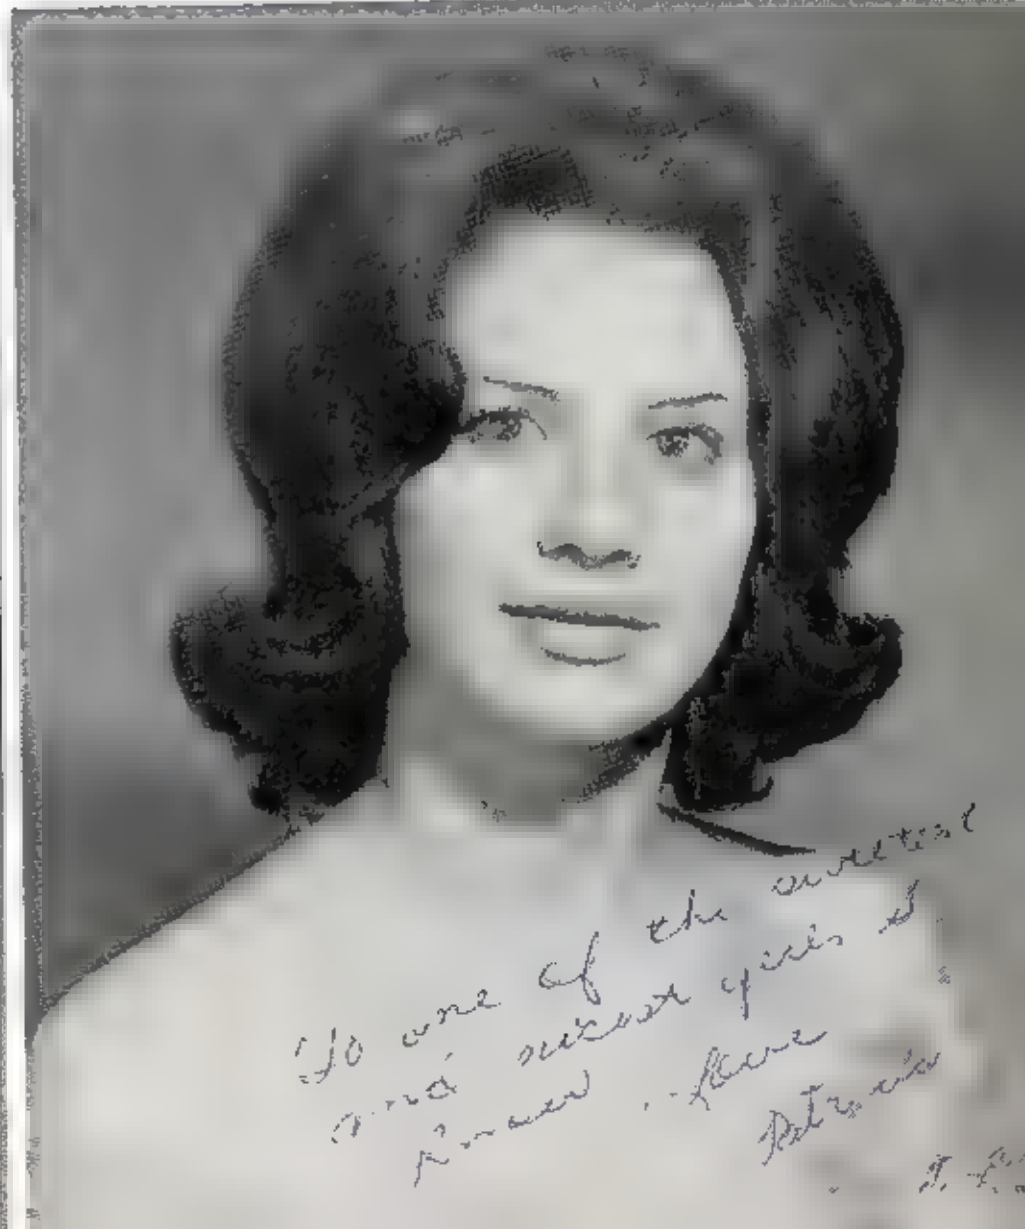 To one of the sweetest
and nicest girls I
know. Love
Patricia